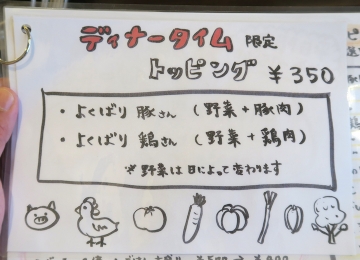 ディナータイム 限定
トッピング ¥350
・よくばり 豚さん (野菜+豚肉)
・よくばり 鶏さん (野菜+鶏肉)
※野菜は日によって変わります